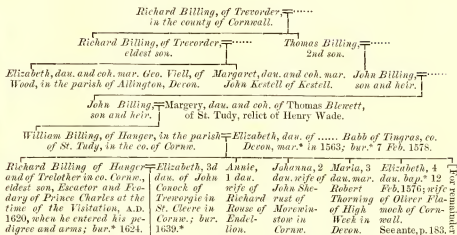 Richard Billing, of Trevorder,
in the county of Cornwall.
Richard Billing, of Trevorder,
eldest son.
Thomas Billing,
2nd son.
Elizabeth, dau. and coh. mar. Geo. Viell, of
Wood, in the parish of Ailington, Devon.
Margaret, dau. and coh. mar.
John Kestell of Kestell.
John Billing,
son and heir.
John Billing,
son and heir.
Margery, dau. and coh. of Thomas Blewett,
of St. Tudy, relict of Henry Wade.
William Billing, of Hanger, in the parish
of St. Tudy, in the co. of Cornw.
Elizabeth, dau. of ...... Babb of Tingras, co.
Devon, mar.* in 1563; bur.* 7 Feb. 1578.
Richard Billing of Hanger
and of Trelother in co. Cornw.,
eldest son, Escaetor and Feo-
dary of Prince Charles at the
time of the Visitation, A.D.
1620, when he entered his pe-
digree and arms; bur.* 1624.
Elizabeth, 3d
dau. of John
Conock of
Treworgie in
St. Cleere in
Cornw.; bur.
1639.*
Annie,
1 dau.
wife of
Richard
Rouse of
Endel-
lion.
Johanna, 2
dau. wife of
John She-
rust of
Morewin-
stow in
Cornw.
Maria, 3
dau. mar.
Robert
Thorning
of High
Week in
Devon.
Elizabeth, 4
dau. bap.* 12
Feb. 1576; wife
of Oliver Fla-
mock of Corn-
wall.
See ante, p. 183.
For remainder